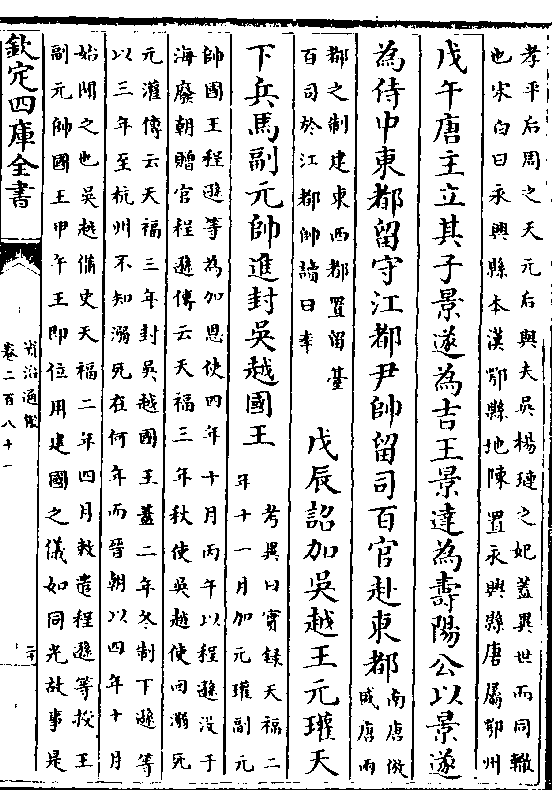 孝平后周之天元后與夫吳楊璉之妃蓋異世而同轍
也宋白曰永興縣本漢鄂縣地陳置永興縣唐屬鄂州
戊午唐主立其子景遂為吉王景達為壽陽公以景遂
為侍中東都留守江都尹帥留司百官赴東都
南唐倣
盛唐兩
都之制建東西都置留臺
百司於江都帥讀曰率
戊辰詔加吳越王元瓘天
下兵馬副元帥進封吳越國王
考異曰實錄天福二
年十一月加元瓘副元
帥國王程遜等為加恩使四年十月丙午以程遜沒于
海廢朝贈官程遜傳云天福三年秋使吳越使回溺死
元瓘傳云天福三年封吳越國王蓋二年冬制下遜等
以三年至杭州不知溺死在何年而晉朝以四年十月
始聞之也吳越備史天福二年四月敕遣程遜等授王
副元帥國王甲午王即位用建國之儀如同光故事是
欽定四庫全書
資治通鑑
卷二百八十一